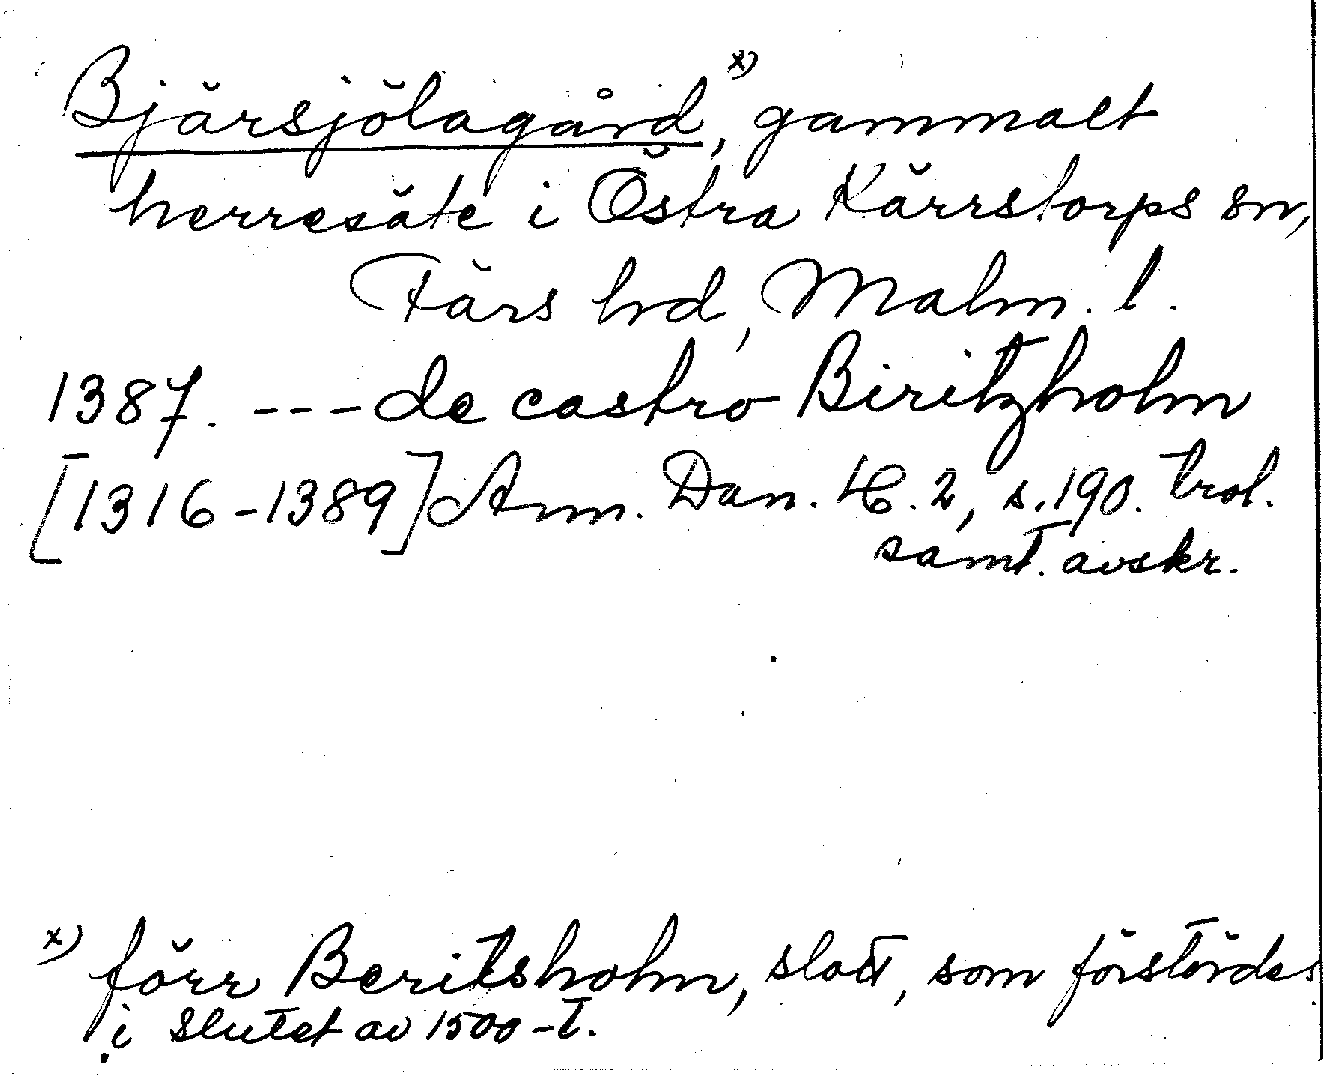 Bjärsjölagård x), gammalt
herresäte i Östra Kärrstorps sn,
Färs hd, Malm. l.
1387. --- de castro Biritzholm
[1316-1389] Ann. Dan. 2, s. 190. trol.
samt. avskr.
x) förr Beritsholm, slott, som förstördes
i slutet av 1500-t.